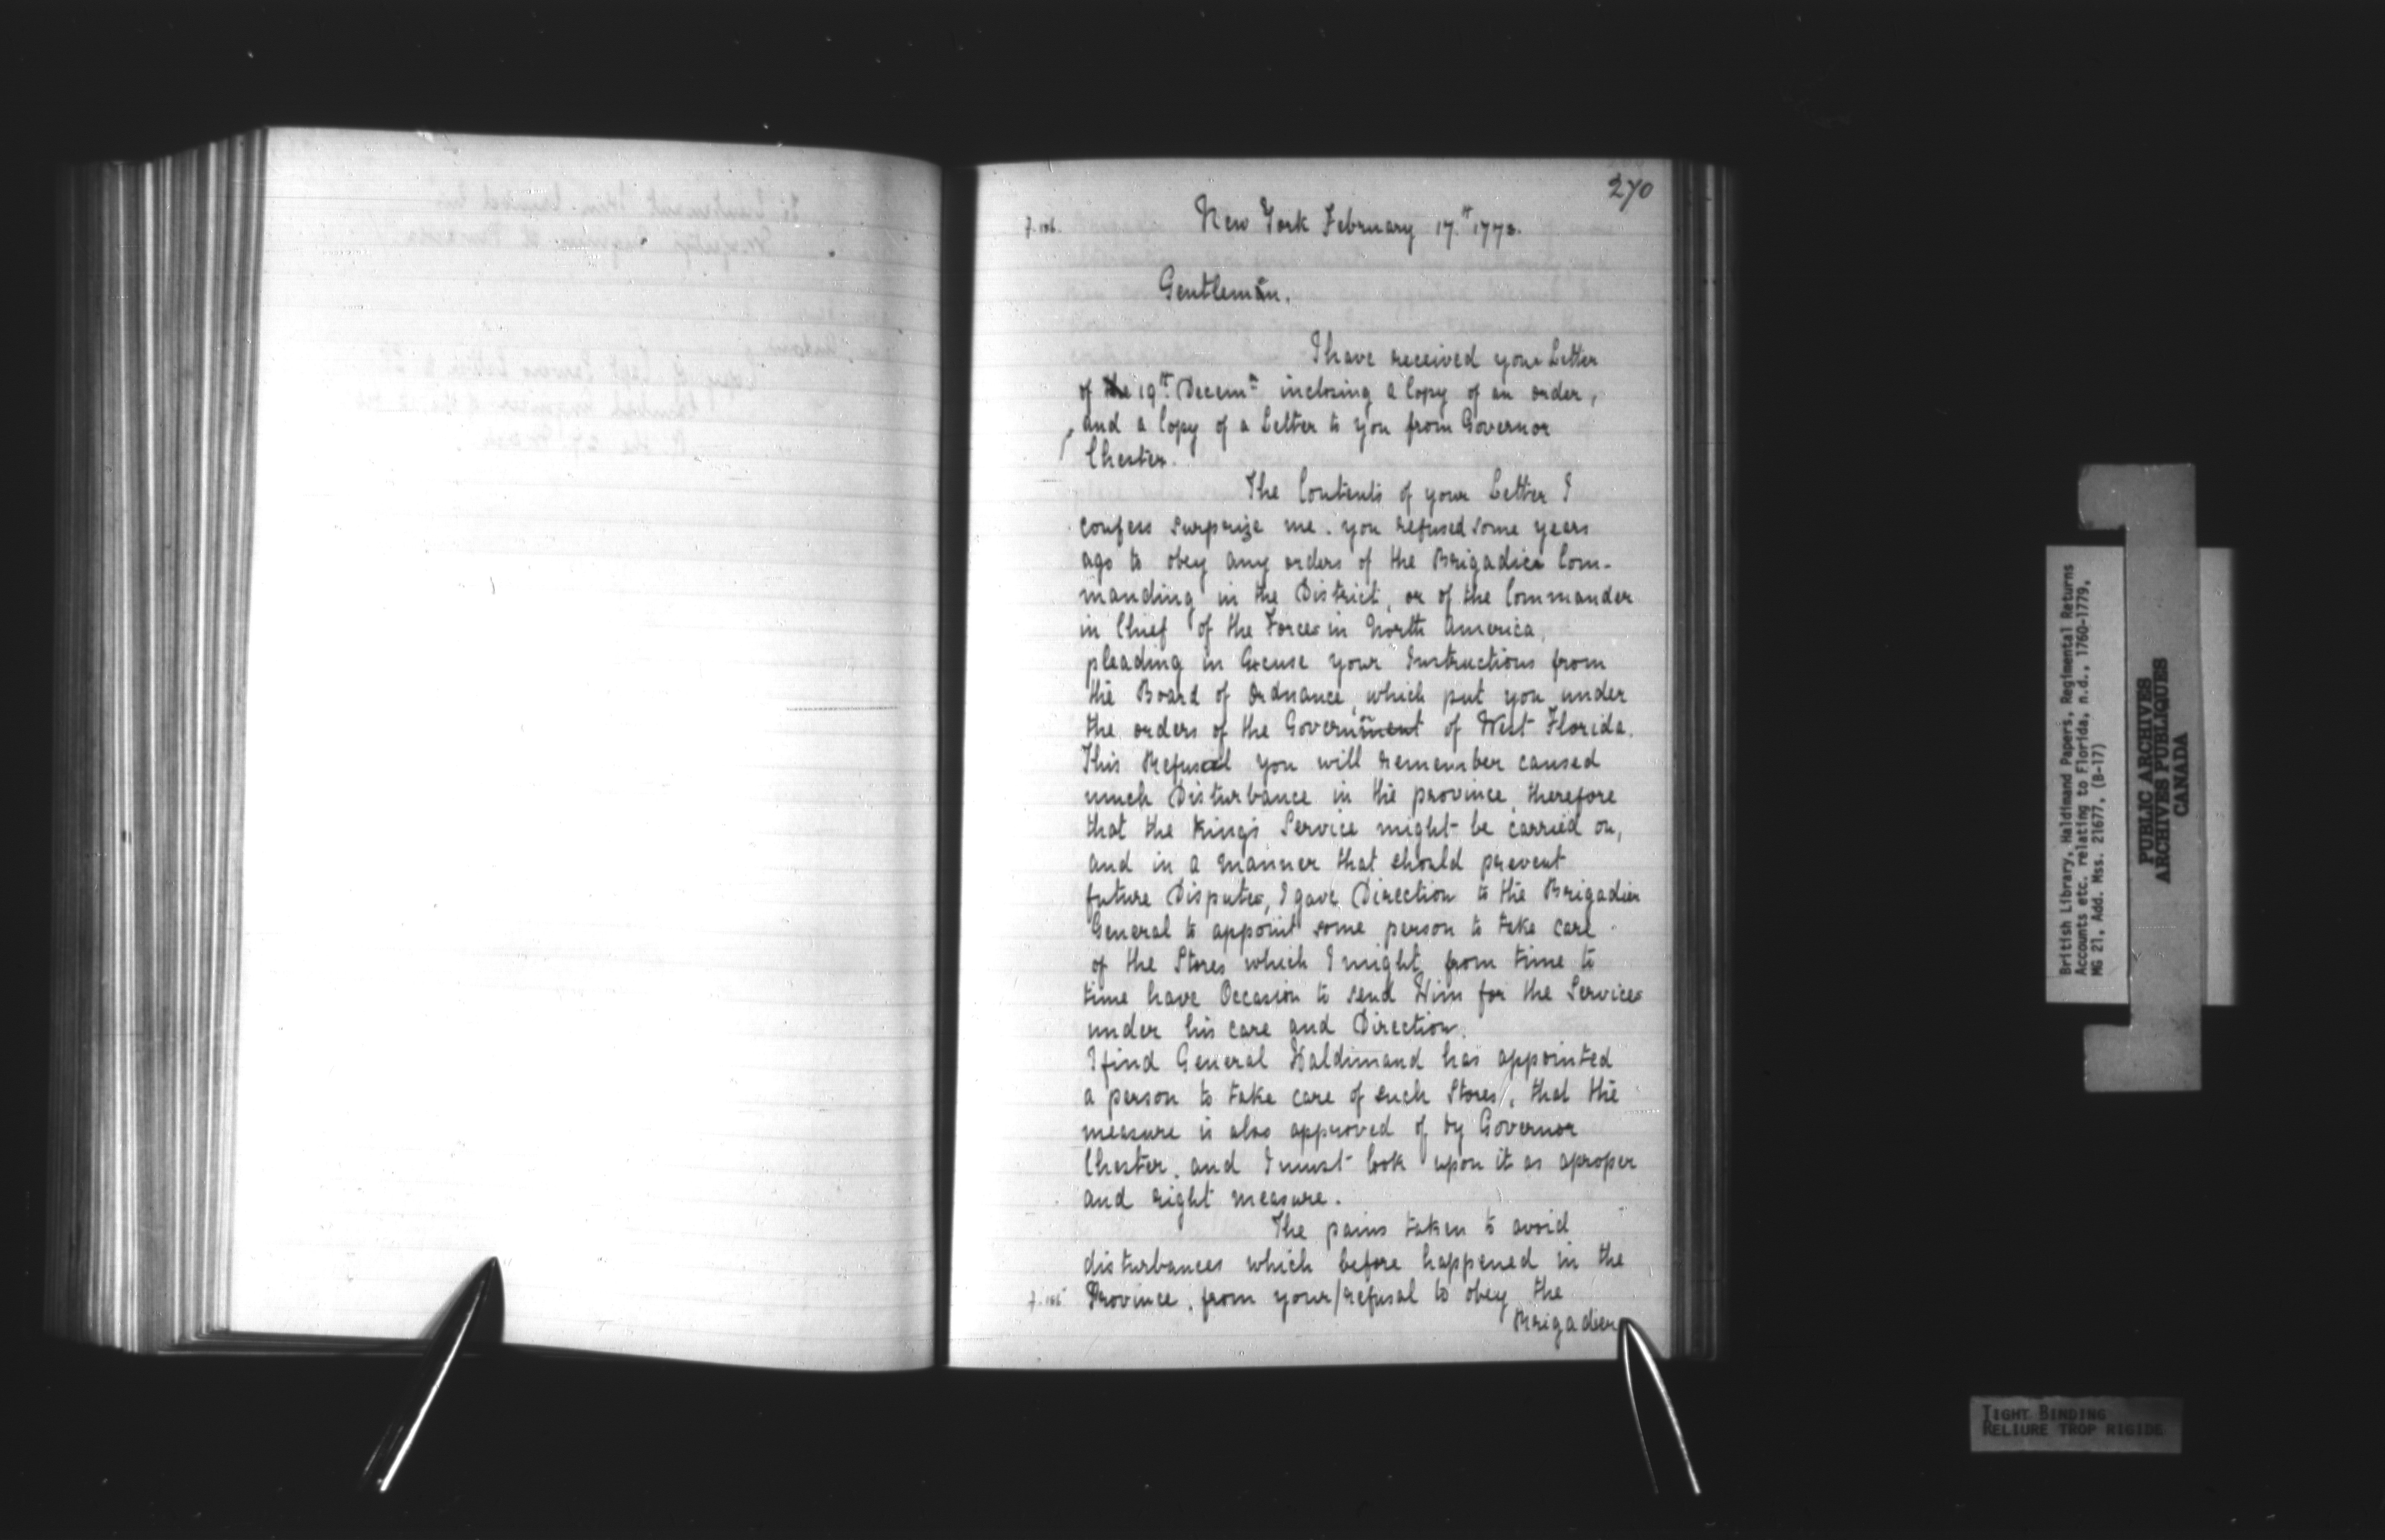 270
f. 186. New York February 17th 1773.
Gentlemen.
I have received your Letter
of the 19th Decemr inclosing a Copy of an order,
and a Copy of a Letter to you from Governor
Chester.
The Contents of your Letter I
confess surprize me. you refused some years
ago to obey any orders of the Brigadier Com-
manding in the District, or of the Commander
in Chief of the Forces in North America,
pleading in Excuse your Instructions from
the Board of Ordnance, which put you under
the orders of the Government of West Florida.
This Refusal you will remember caused
much Disturbance in the province, therefore
that the King's Service might be carried on,
and in a manner that should prevent
future Disputes, I gave Direction to the Brigadier
General to appoint some person to take care
of the Stores which I might from time to
time have Occasion to send Him for the Services
under his care and Direction.
I find General Haldimand has appointed
a person to take care of such Stores, that the
measure is also approved of by Governor
Chester, and I must look upon it as aproper
and right measure.
The pains taken to avoid
disturbances which before happened in the
Province, from your/refusal to obey the
Brigadier
British Library, Haldimand Papers, Regimental Returns
Accounts etc. relating to Florida, n.d., 1760-1779.
MG 21, Add. Mss. 21677, (B-17)
PUBLIC ARCHIVES
ARCHIVES PUBLIQUES
CANADA
TIGHT BINDING
RELIURE TROP RIGIDE